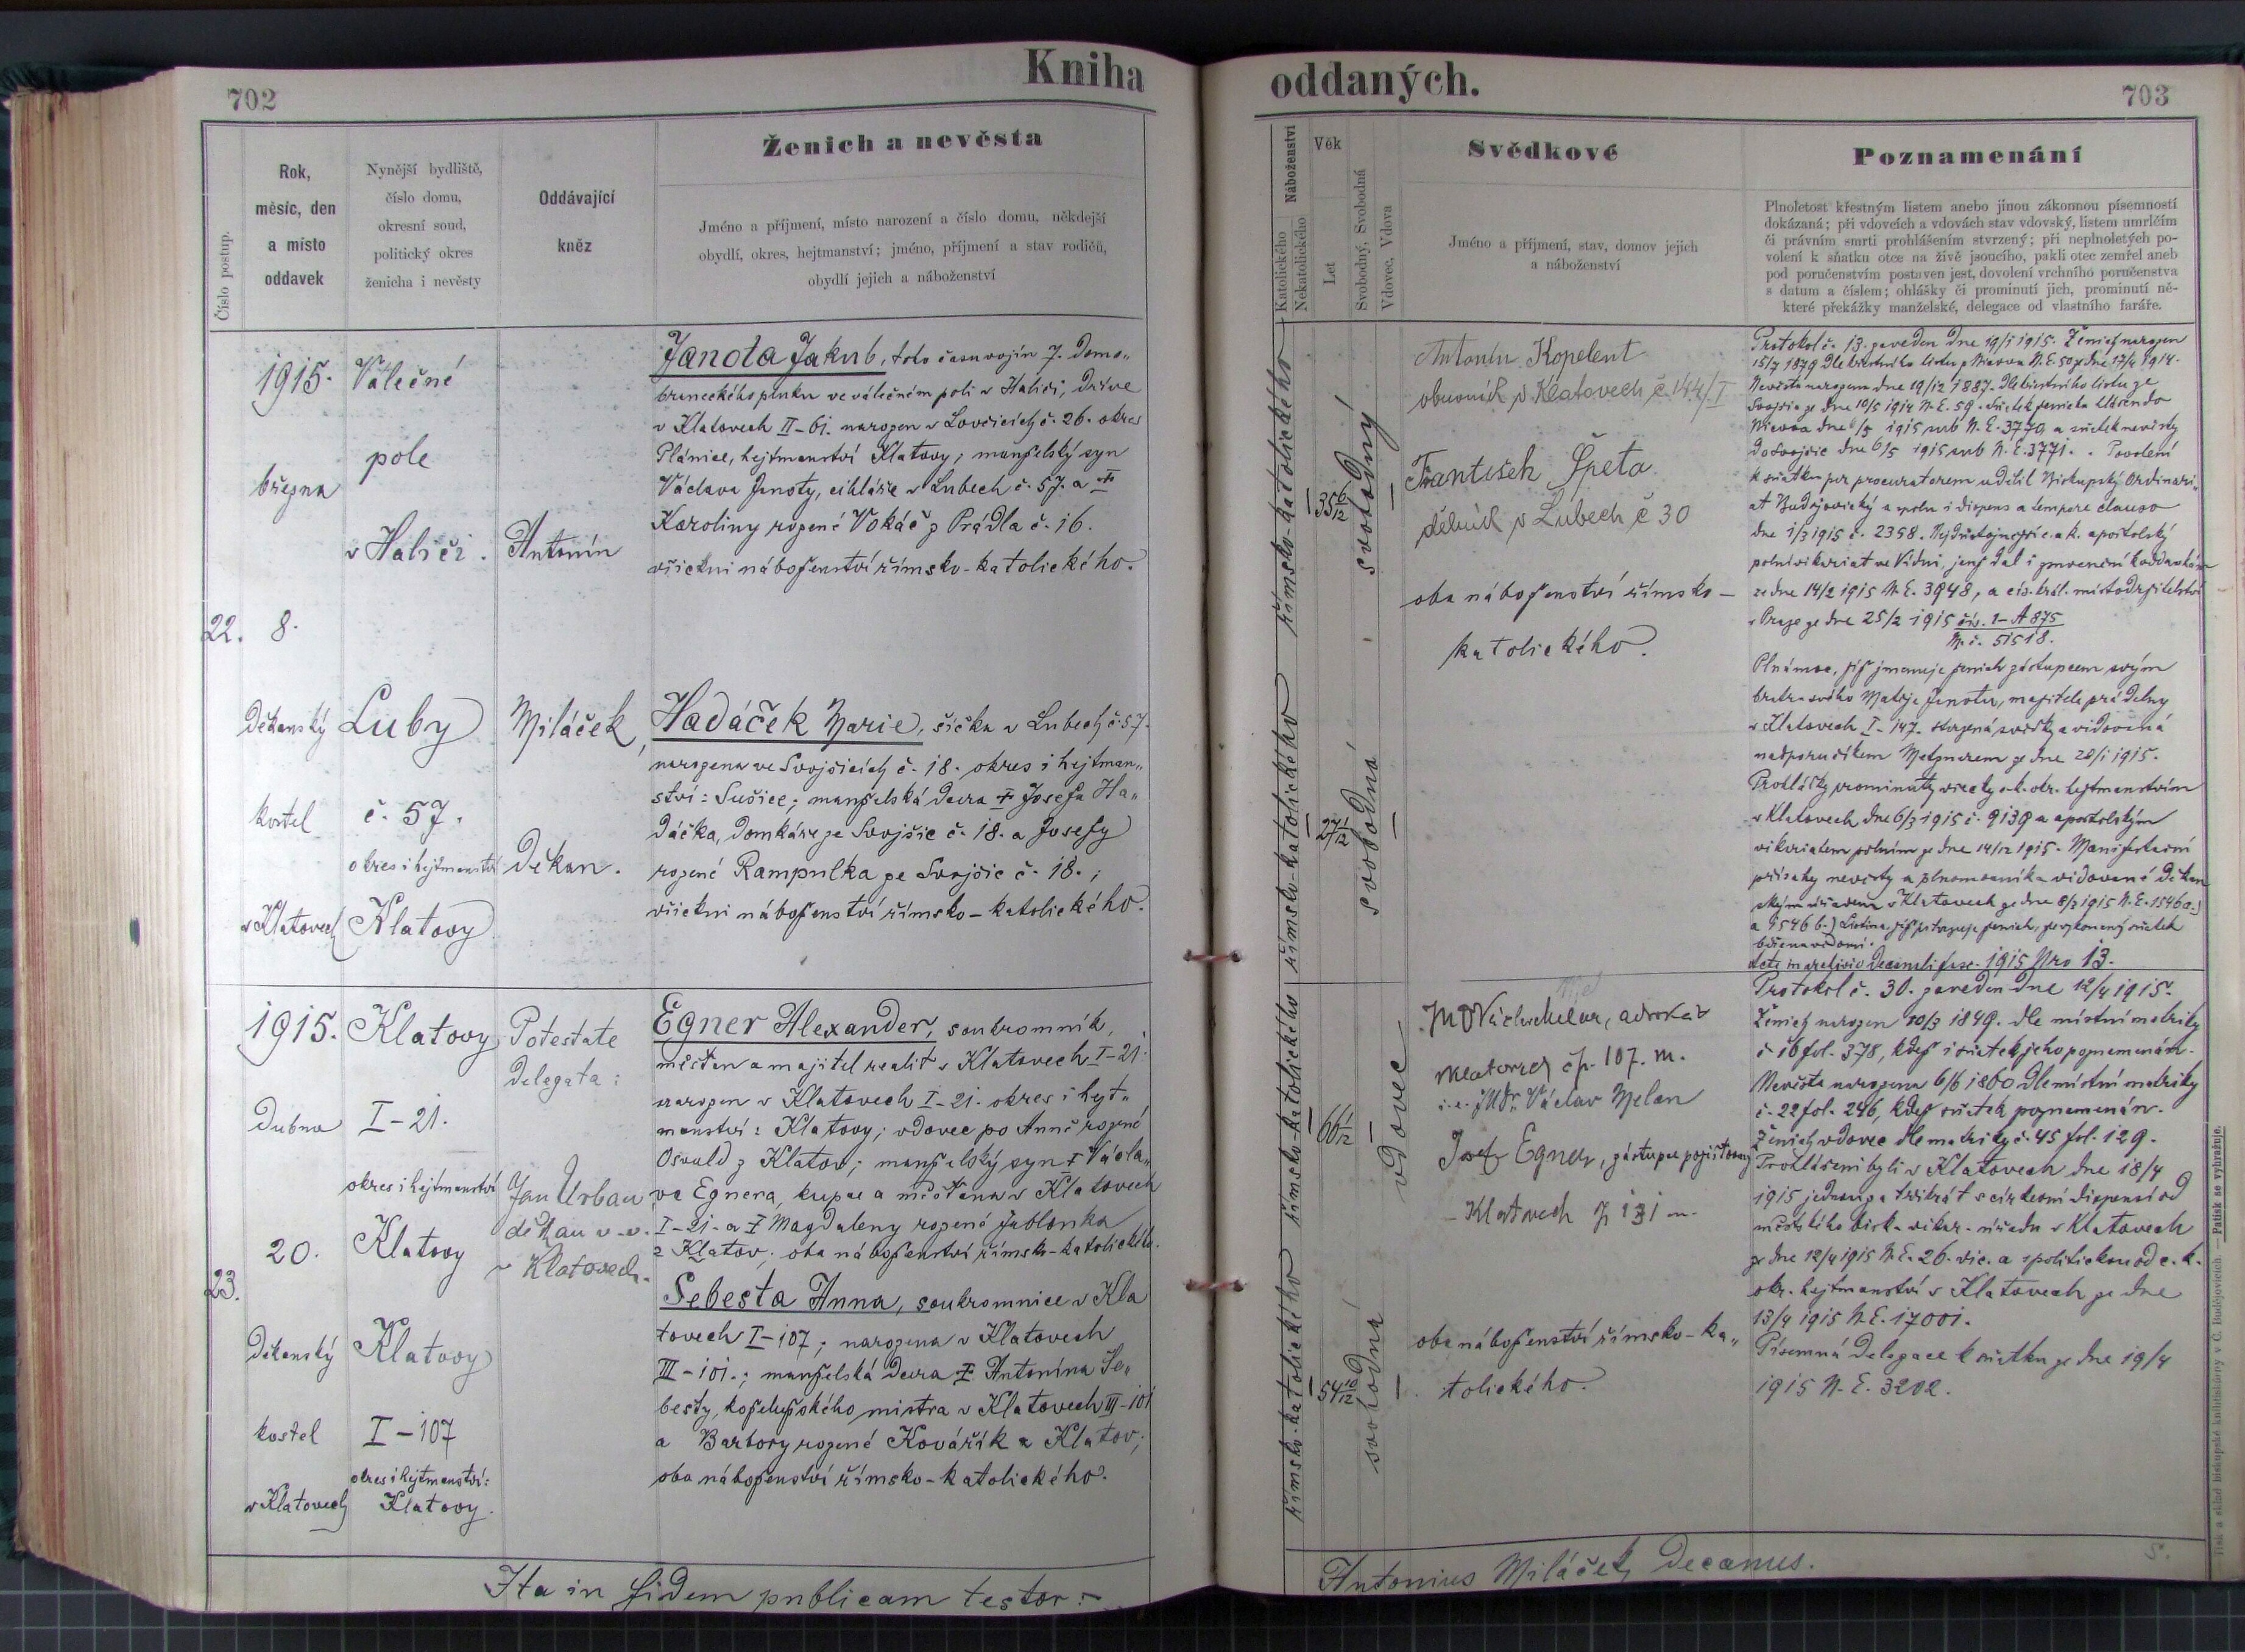 702
Kniha
Číslo postup.
Rok,
měsíc, den
a místo
oddavek
Nynější bydliště,
číslo domu,
okresní soud,
politický okres
ženicha i nevěsty
Oddávající
kněz
Ženich a nevěsta
Jméno a příjmení, místo narození a číslo domu, někdejší
obydlí, okres, hejtmanství; jméno, příjmení a stav rodičů,
obydlí jejich a náboženství
22.
1915.
března
8.
Děkanský
kostel
v Klatovech
Válečné
pole
v Haliči.
Luby
č. 57.
okres i hejtmanství
Klatovy
Antonín
Miláček,
děkan.
Janota Jakub, toho času vojín 7. domo„
braneckého pluku ve válečném poli v Haliči, dříve
v Klatovech II-61. narozen v Lovčicích č. 26. okres
Plánice, hejtmanství Klatovy; manželský syn
Václava Janoty, cihláře v Lubech č. 57. a †
Karoliny rozené Vokáč z Prádla č. 16.
všichni náboženství římsko-katolického.
Hadáček Marie, šička v Lubech č. 57.
narozena ve Svojšicích č. 18. okres i hejtman„
ství: Sušice; manželská dcera † Josefa Ha„
dáčka, domkáře ze Svojšic č. 18. a Josefy
rozené Rampulka ze Svojšic č. 18.;
všichni náboženství římsko-katolického.
23.
1915.
Dubna
20.
Děkanský
kostel
v Klatovech
Klatovy
I-21.
okres i hejtmanství
Klatovy
Klatovy
I-107
okres i hejtmanství:
Klatovy.
Potestate
delegata:
Jan Urban
děkan v.v.
v Klatovech.
Egner Alexander, soukromník,
měšťan a majitel realit v Klatovech I-21.
narozen v Klatovech I-21. okres i hejt„
manství: Klatovy; vdovec po Anně rozené
Osvald z Klatov; manželský syn † Václa„
va Egnera, kupce a měšťana v Klatovech
I-21. a † Magdaleny rozené Jablonka
z Klatov; oba náboženství římsko-katolického.
Šebesta Anna, soukromnice v Kla
tovech I-107; narozena v Klatovech
III-101.; manželská dcera † Antonína Še„
besty, koželužského mistra v Klatovech III-101
a Barbory rozené Kovářík z Klatov;
oba náboženství římsko-katolického.
Ita in fidem publicam testor:-
oddaných.
703
Náboženství
Katolického
Nekatolického
Věk
Let
Svobodný, Svobodná
Vdovec, Vdova
Svědkové
Jméno a příjmení, stav, domov jejich
a náboženství
Poznamenání
Plnoletost křestným listem anebo jinou zákonnou písemností
dokázaná; při vdovcích a vdovách stav vdovský, listem umrlčím
či právním smrti prohlášením stvrzený; při neplnoletých po-
volení k sňatku otce na živě jsoucího, pakli otec zemřel aneb
pod poručenstvím postaven jest, dovolení vrchního poručenstva
s datum a číslem; ohlášky či prominutí jich, prominutí ně-
které překážky manželské, delegace od vlastního faráře.
římsko-katolického
35 6/12
svobodný
římsko-katolického
27 1/12
svobodná
Antonín Kopelent
obuvník v Klatovech č. 144/I
František Špeta
dělník v Lubech č 30
oba náboženství římsko-
katolického.
Protokol č. 13. zaveden dne 19/1 1915. Ženich narozen
Nevěsta narozena dne 19/12 1887. dle křestního listu ze
Svojšic ze dne 10/5 1914 N.E. 59.
dne 1/3 1915 č. 2358.
polní vikariát ve Vídni, jenž dal i zmocnění k oddavkám
ze dne 14/2 1915 N.E. 3948, a cís. král. místodržitelství
v Praze ze dne 25/2 1915 čís. 1-A 875
N. č. 51518.
Plná moc, jíž jmenuje ženich zástupcem svým
bratra svého Matěje Janotu, majitele prádelny
v Klatovech I-147. stvrzená svědky a vidovaná
nadporučíkem ze dne 28/1 1915.
Prohlášky prominuty c.k. okr. hejtmanstvím
v Klatovech dne 6/3 1915 č. 9139 a apoštolským
vikariátem polním ze dne 14/12 1915. Manifestační
přísahy nevěsty a plnomocníka vidované děkan
ským úřadem v Klatovech ze dne 8/3 1915 N.E. 1546 a.)
1915 Nro 13.
římsko-katolického
66 1/12
vdovec
římsko-katolického
54 10/12
svobodná
advokát
Klatovech čp. 107. m.
i.e. JUDr. Václav Melan
Josef Egner, zástupce pojišťovny
Klatovech
oba náboženství římsko-ka„
tolického.
Protokol č. 30. zaveden dne 12/4 1915.
Ženich narozen 10/3 1849. dle místní matriky
č 16 fol. 378, kdež i sňatek jeho poznamenán.
Nevěsta narozena 6/6 1860 dle místní matriky
č. 22 fol. 246, kdež sňatek poznamenán.
Ženich vdovec dle matriky č. 45 fol. 129.
Prohlášeni byli v Klatovech dne 18/4
1915 jednou za třikrát s církevní dispensí od
městského bisk. vikar. úřadu v Klatovech
ze dne 12/4 1915 N.E. 26. vic. a s politickou od c.k.
okr. hejtmanství v Klatovech ze dne
13/4 1915 N.E. 17001.
Písemná delegace k sňatku ze dne 19/4
1915 N.E. 3202.
Antonius Miláček, Decanus.
Tisk a sklad biskupské knihtiskárny v Č. Budějovicích. — Patisk se vyhražuje.